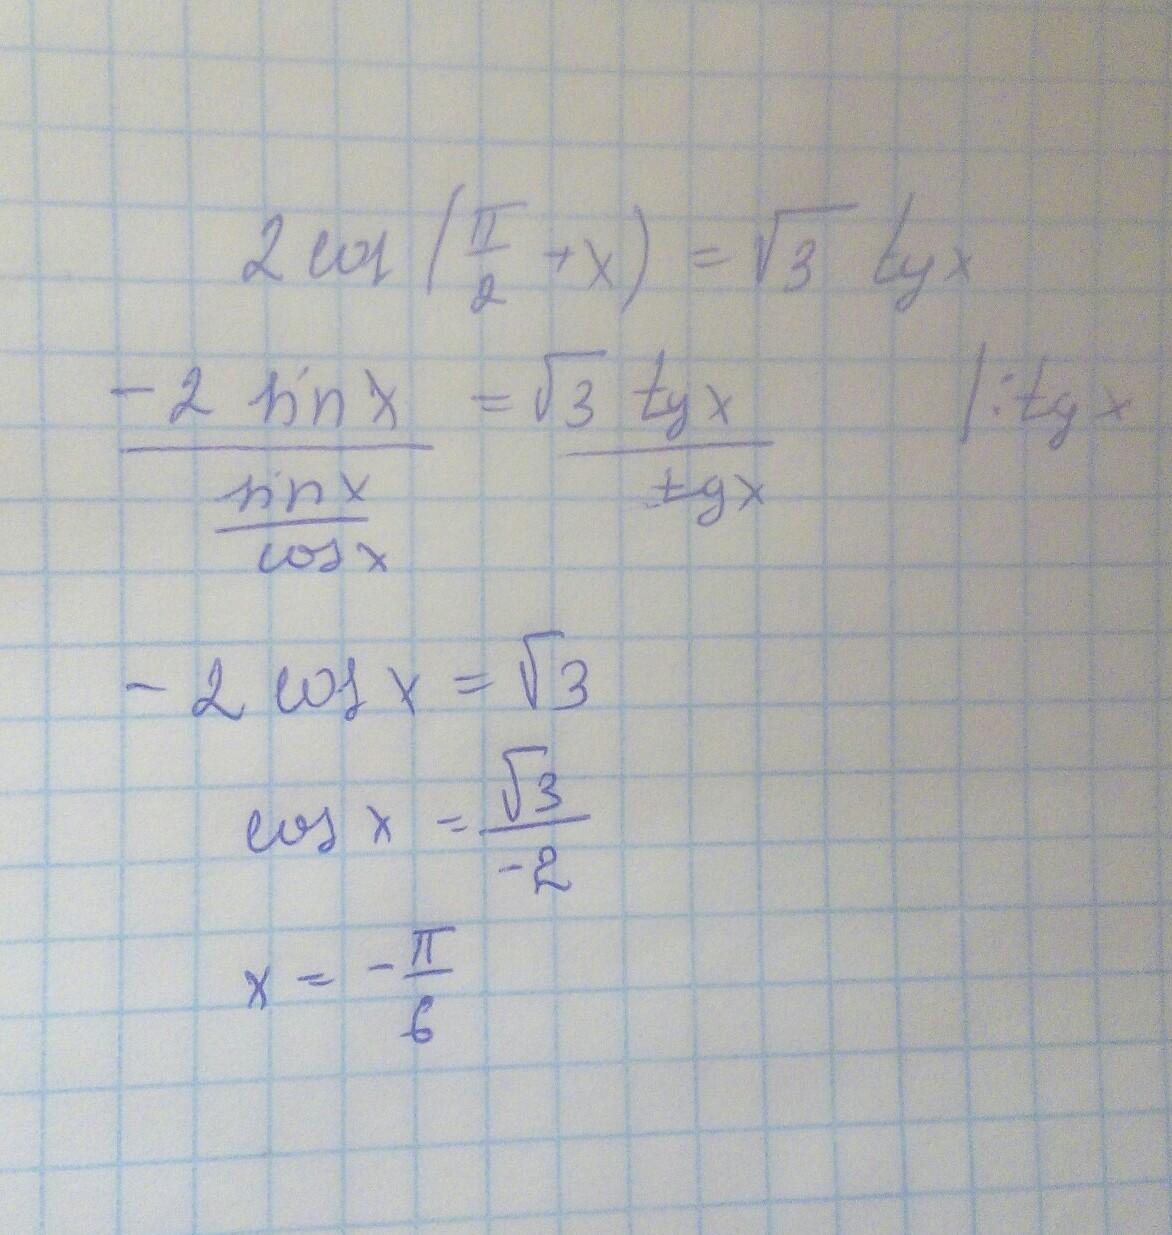 2 cos (π/2 + x) = √3 tg x
-2 sin x / (sin x / cos x) = √3 tg x / tg x |: tg x
-2 cos x = √3
cos x = √3 / -2
x = -π/6